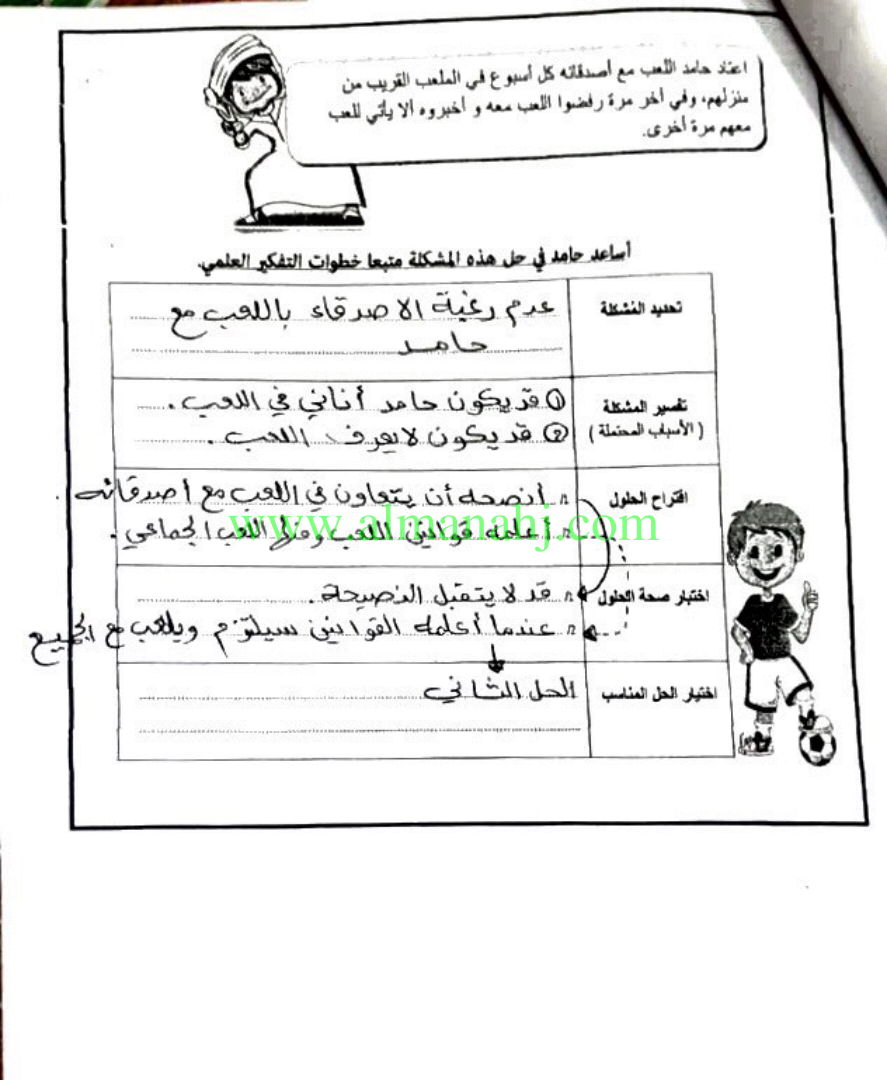 اعتاد حامد اللعب مع أصدقائه كل أسبوع في الملعب القريب من
منزلهم، وفي آخر مرة رفضوا اللعب معه و أخبروه ألا يأتي للعب
معهم مرة أخرى.
أساعد حامد في حل هذه المشكلة متبعا خطوات التفكير العلمي.
تحديد المشكلة
عدم رغبة الاصدقاء باللعب مع
حامد
تفسير المشكلة
( الأسباب المحتملة )
① قد يكون حامد أناني في اللعب.
② قد يكون لا يعرف اللعب.
اقتراح الحلول
أنصحه أن يتعاون في اللعب مع أصدقائه.
أعلمه قوانين اللعب ومنها اللعب الجماعي.
www.almanahj.com
اختبار صحة الحلول
قد لا يتقبل النصيحة.
عندما أعلمه القوانين سيلتزم ويلعب مع الجميع
اختيار الحل المناسب
الحل الثاني